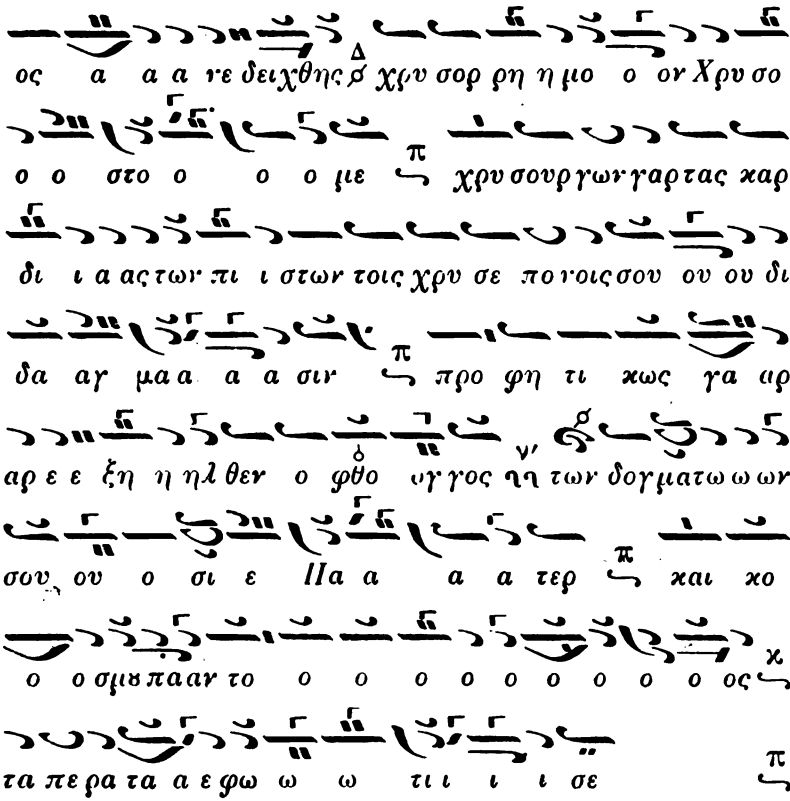 ος α α α νε δειχθης Δ χρυ σορ ρη η μο ο ον Χρυ σο
ο ο στο ο ο ο με π χρυ σουρ γων γαρ τας καρ
δι ι α ας των πι ι στων τοις χρυ σε πο νοις σου ου ου δι
δα αγ μα α α α σιν π προ φη τι κως γα αρ
αρ ε ε ξη η ηλ θεν ο φθο ογ γος νη των δογ μα τω ω ων
σου ου ο σι ε Πα α α α τερ π και κο
ο ο σμου πα αν το ο ο ο ο ο ο ο ο ο ος κ
τα πε ρα τα α ε φω ω ω τι ι ι ι σε π